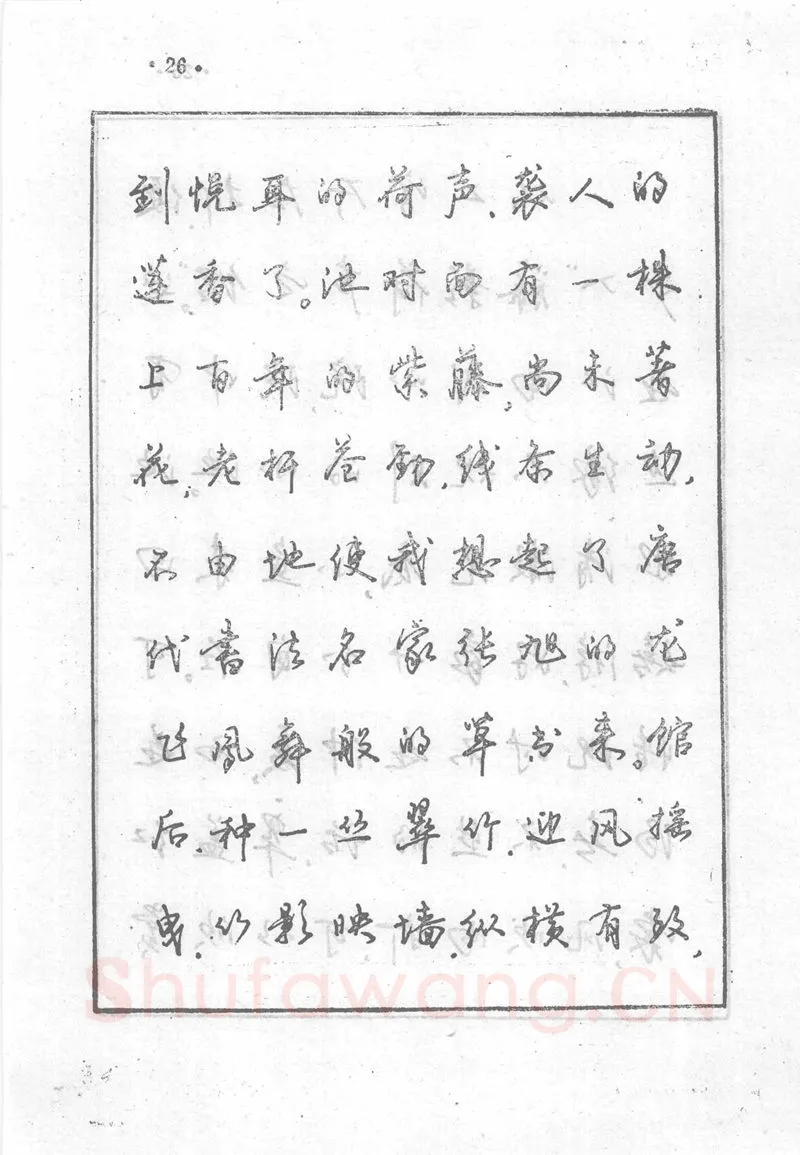 ·26·
到悦耳的荷声、袭人的
莲香了。池对面有一株
上百年的紫藤,尚未著
花,老杆苍劲,线条生动,
不由地使我想起了唐
代书法名家张旭的龙
飞凤舞般的草书来。馆
后,种一丛翠竹,迎风摇
曳,竹影映墙,纵横有致,
Shufawang.CN